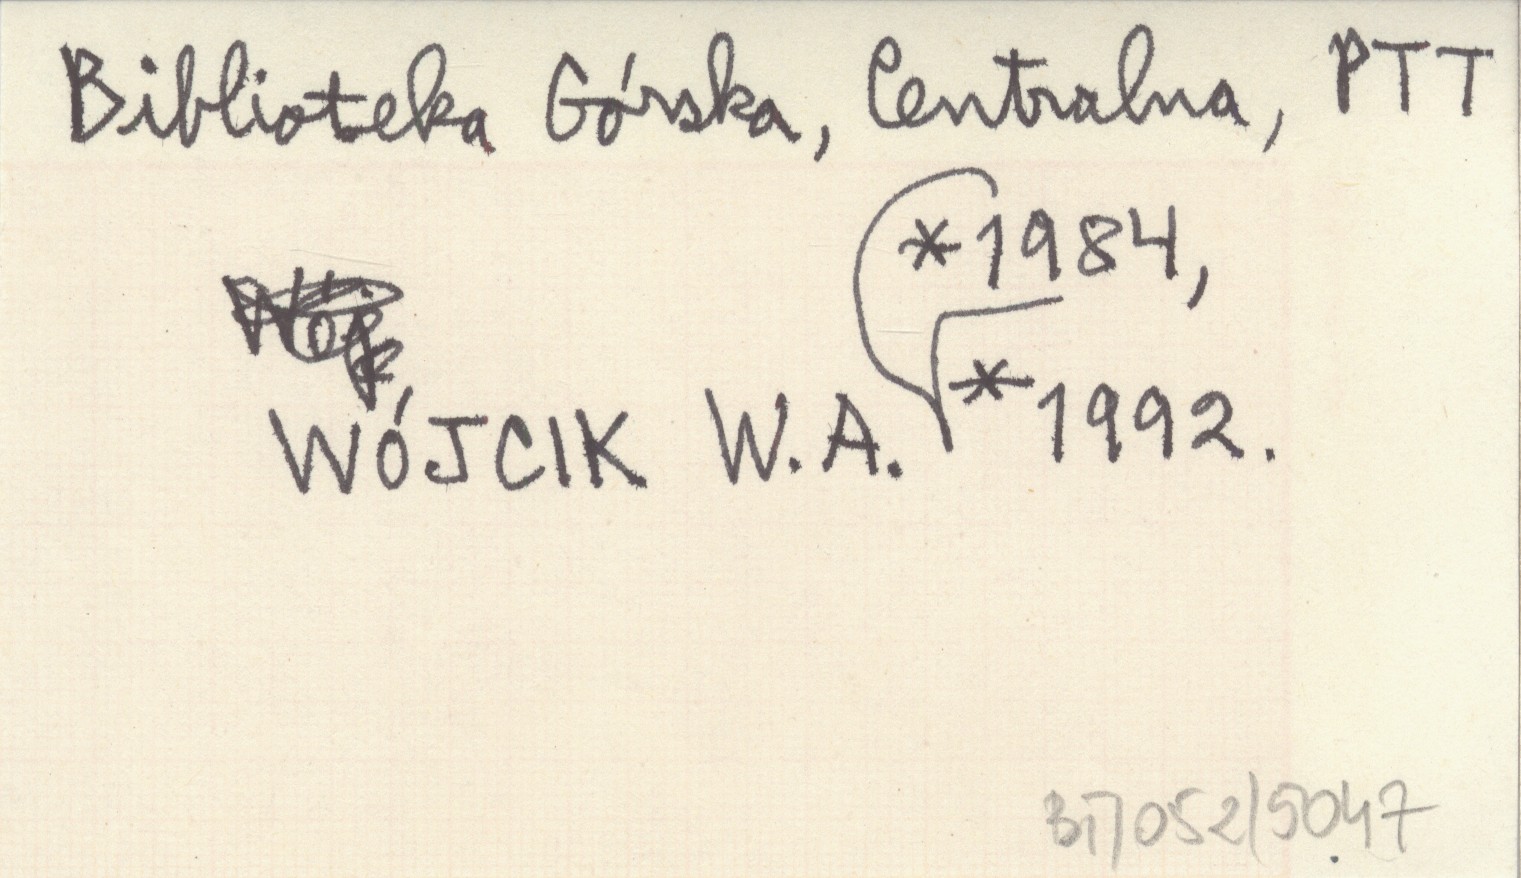 Biblioteka Górska, Centralna, PTT
*1984,
WÓJCIK W.A. *1992.
BT/052/5047